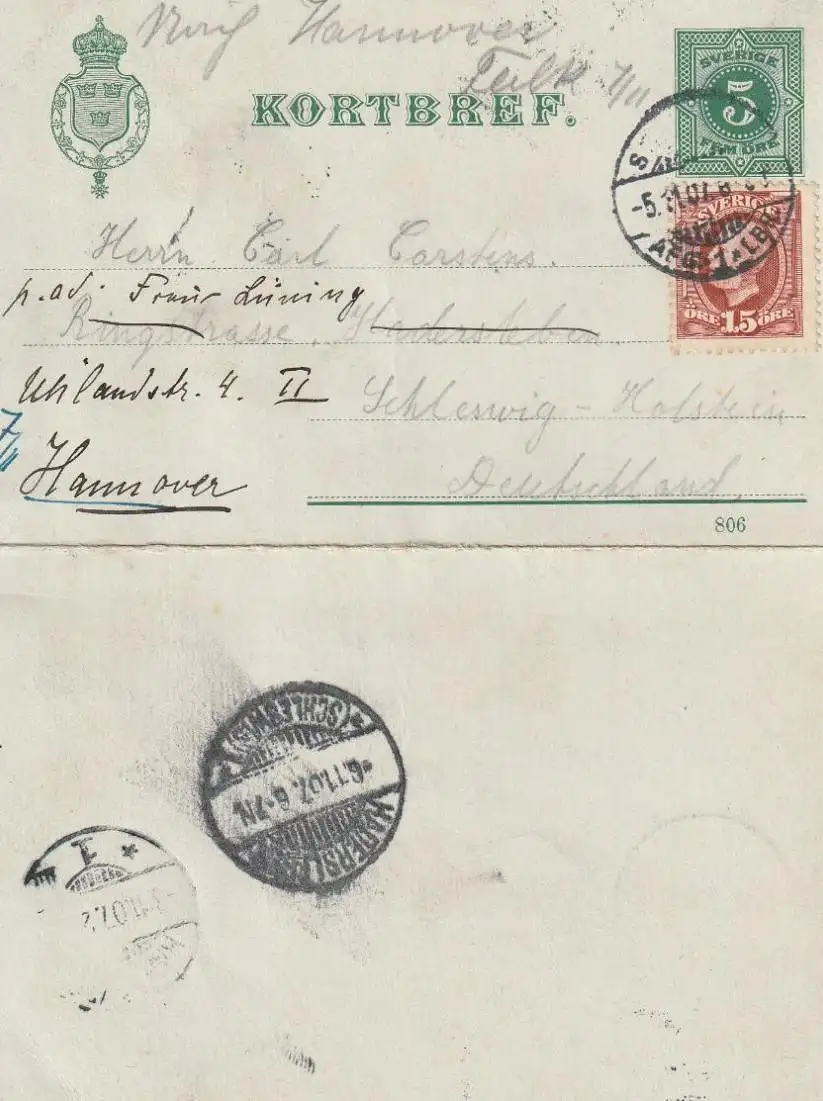 Nach Hannover
7/11
KORTBREF.
SVERIGE
5
FEM ÖRE
-5.11.07. 8
AFG. 1 * LBR.
SVERIGE
ÖRE 15 ÖRE
Herrn Carl Carstens.
p. ad. Frau Lüning
Ringstrasse, Hadersleben.
Uhlandstr. 4. II
Schleswig - Holstein
7/11
Hannover
Deutschland.
806
(SCHLESWIG)
*6.11.07. 6-7N.
HADERSL
1 *
11.07.